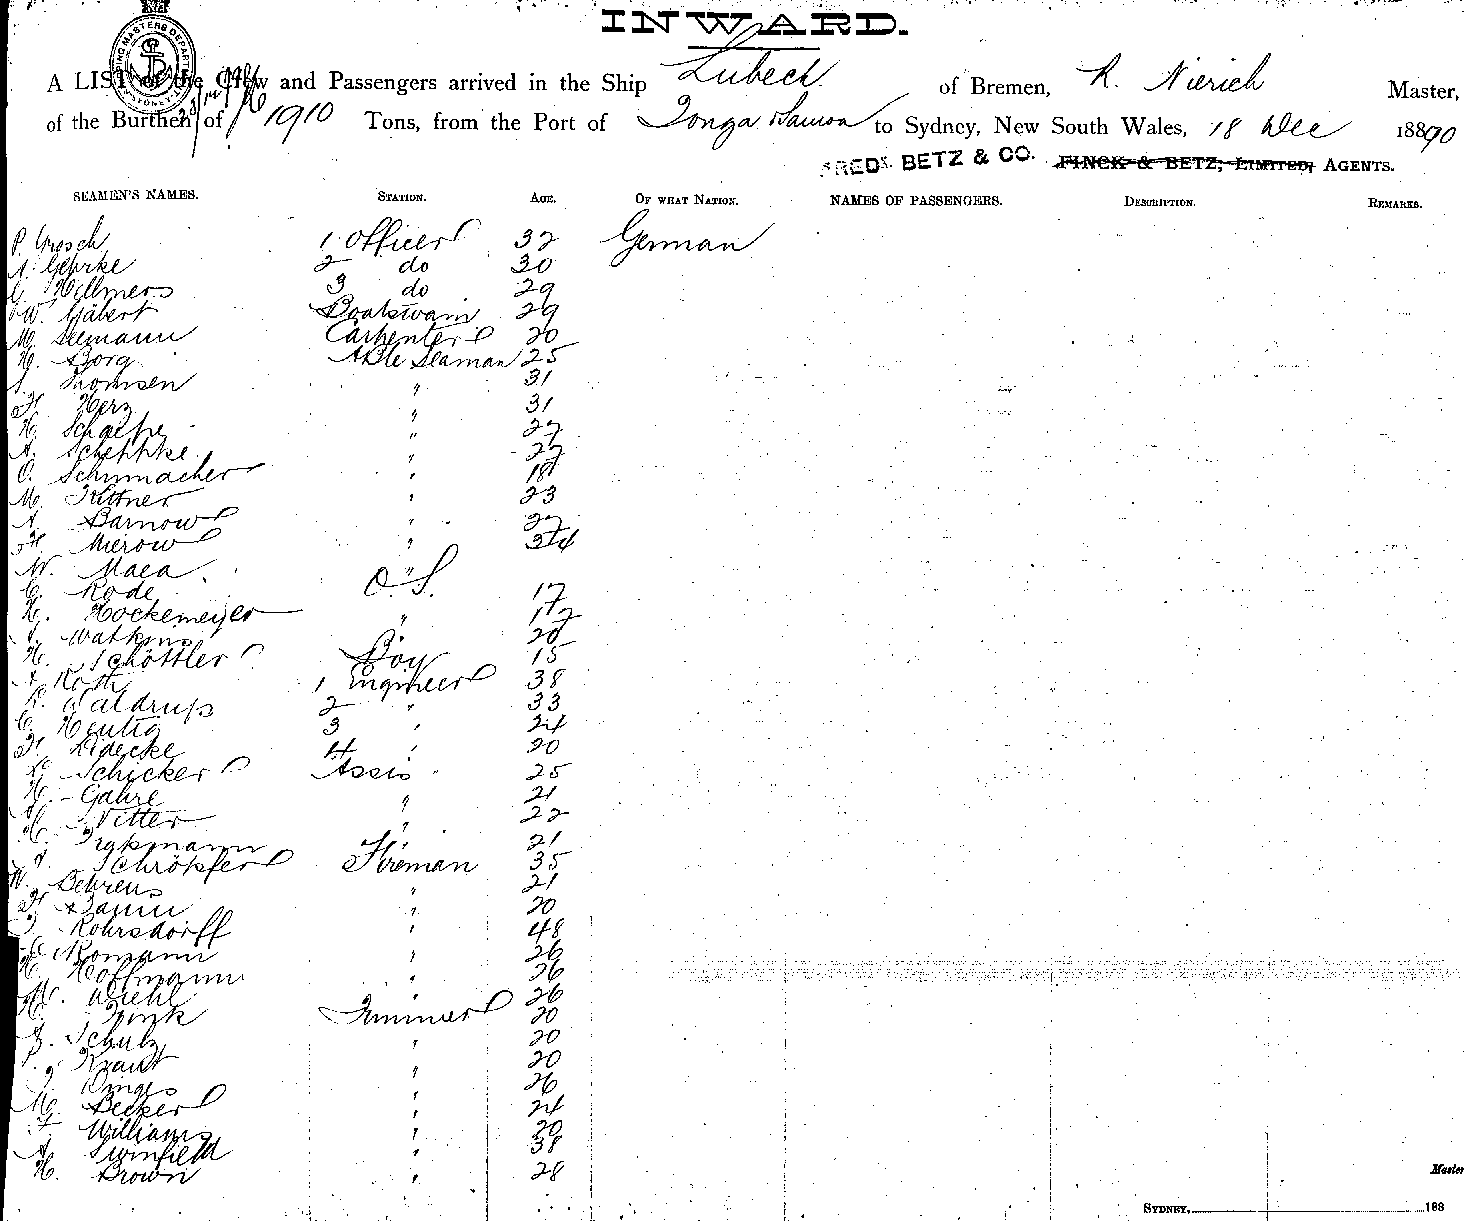 INWARD.
A LIST of the Crew and Passengers arrived in the Ship Lubeck of Bremen, R. Nierich Master,
of the Burthen of 1910 Tons, from the Port of Tonga Samoa to Sydney, New South Wales, 18 Dec 18890
FREDK. BETZ & CO. FINCK & BETZ, LIMITED, AGENTS.
SEAMEN'S NAMES. STATION. AGE. OF WHAT NATION. NAMES OF PASSENGERS. DESCRIPTION. REMARKS.
P. Grosch 1 Officer 32 German
A. Gehrke 2 do 30
Hillmers 3 do 29
W. Gabert Boatswain 29
M. Seemann Carpenter 20
H. Borg Able Seaman 25
Thomsen " 31
H. Herz " 31
H. Schaefer " 27
A. Scheppke " 27
O. Schumacher " 18
M. Kittner " 23
A. Barnow " 27
H. Mierow " 34
W. Maea "
C. Rode O.S. 17
H. Hockemeijer " 17
Watkins 20
H. Schöttler Boy 15
Roth 1 Engineer 38
Waldrup 2 " 33
C. Hentig 3 " 24
Lidecke 4 " 20
Schicker Assis 25
H. Gahre " 21
Vitter " 22
H. 21
Schröpfer Fireman 35
W. Behrens " 21
" 20
Rohrsdorff " 48
Romann " 26
H. Hoffmann " 26
W. Diehl " 26
Fink Trimmer 20
Schulz " 20
P. Kraut " 20
J. Dinges " 26
M. Becker " 24
F. Williams " 20
A. Swinfield " 38
H. Brown " 28
Master
SYDNEY, 188